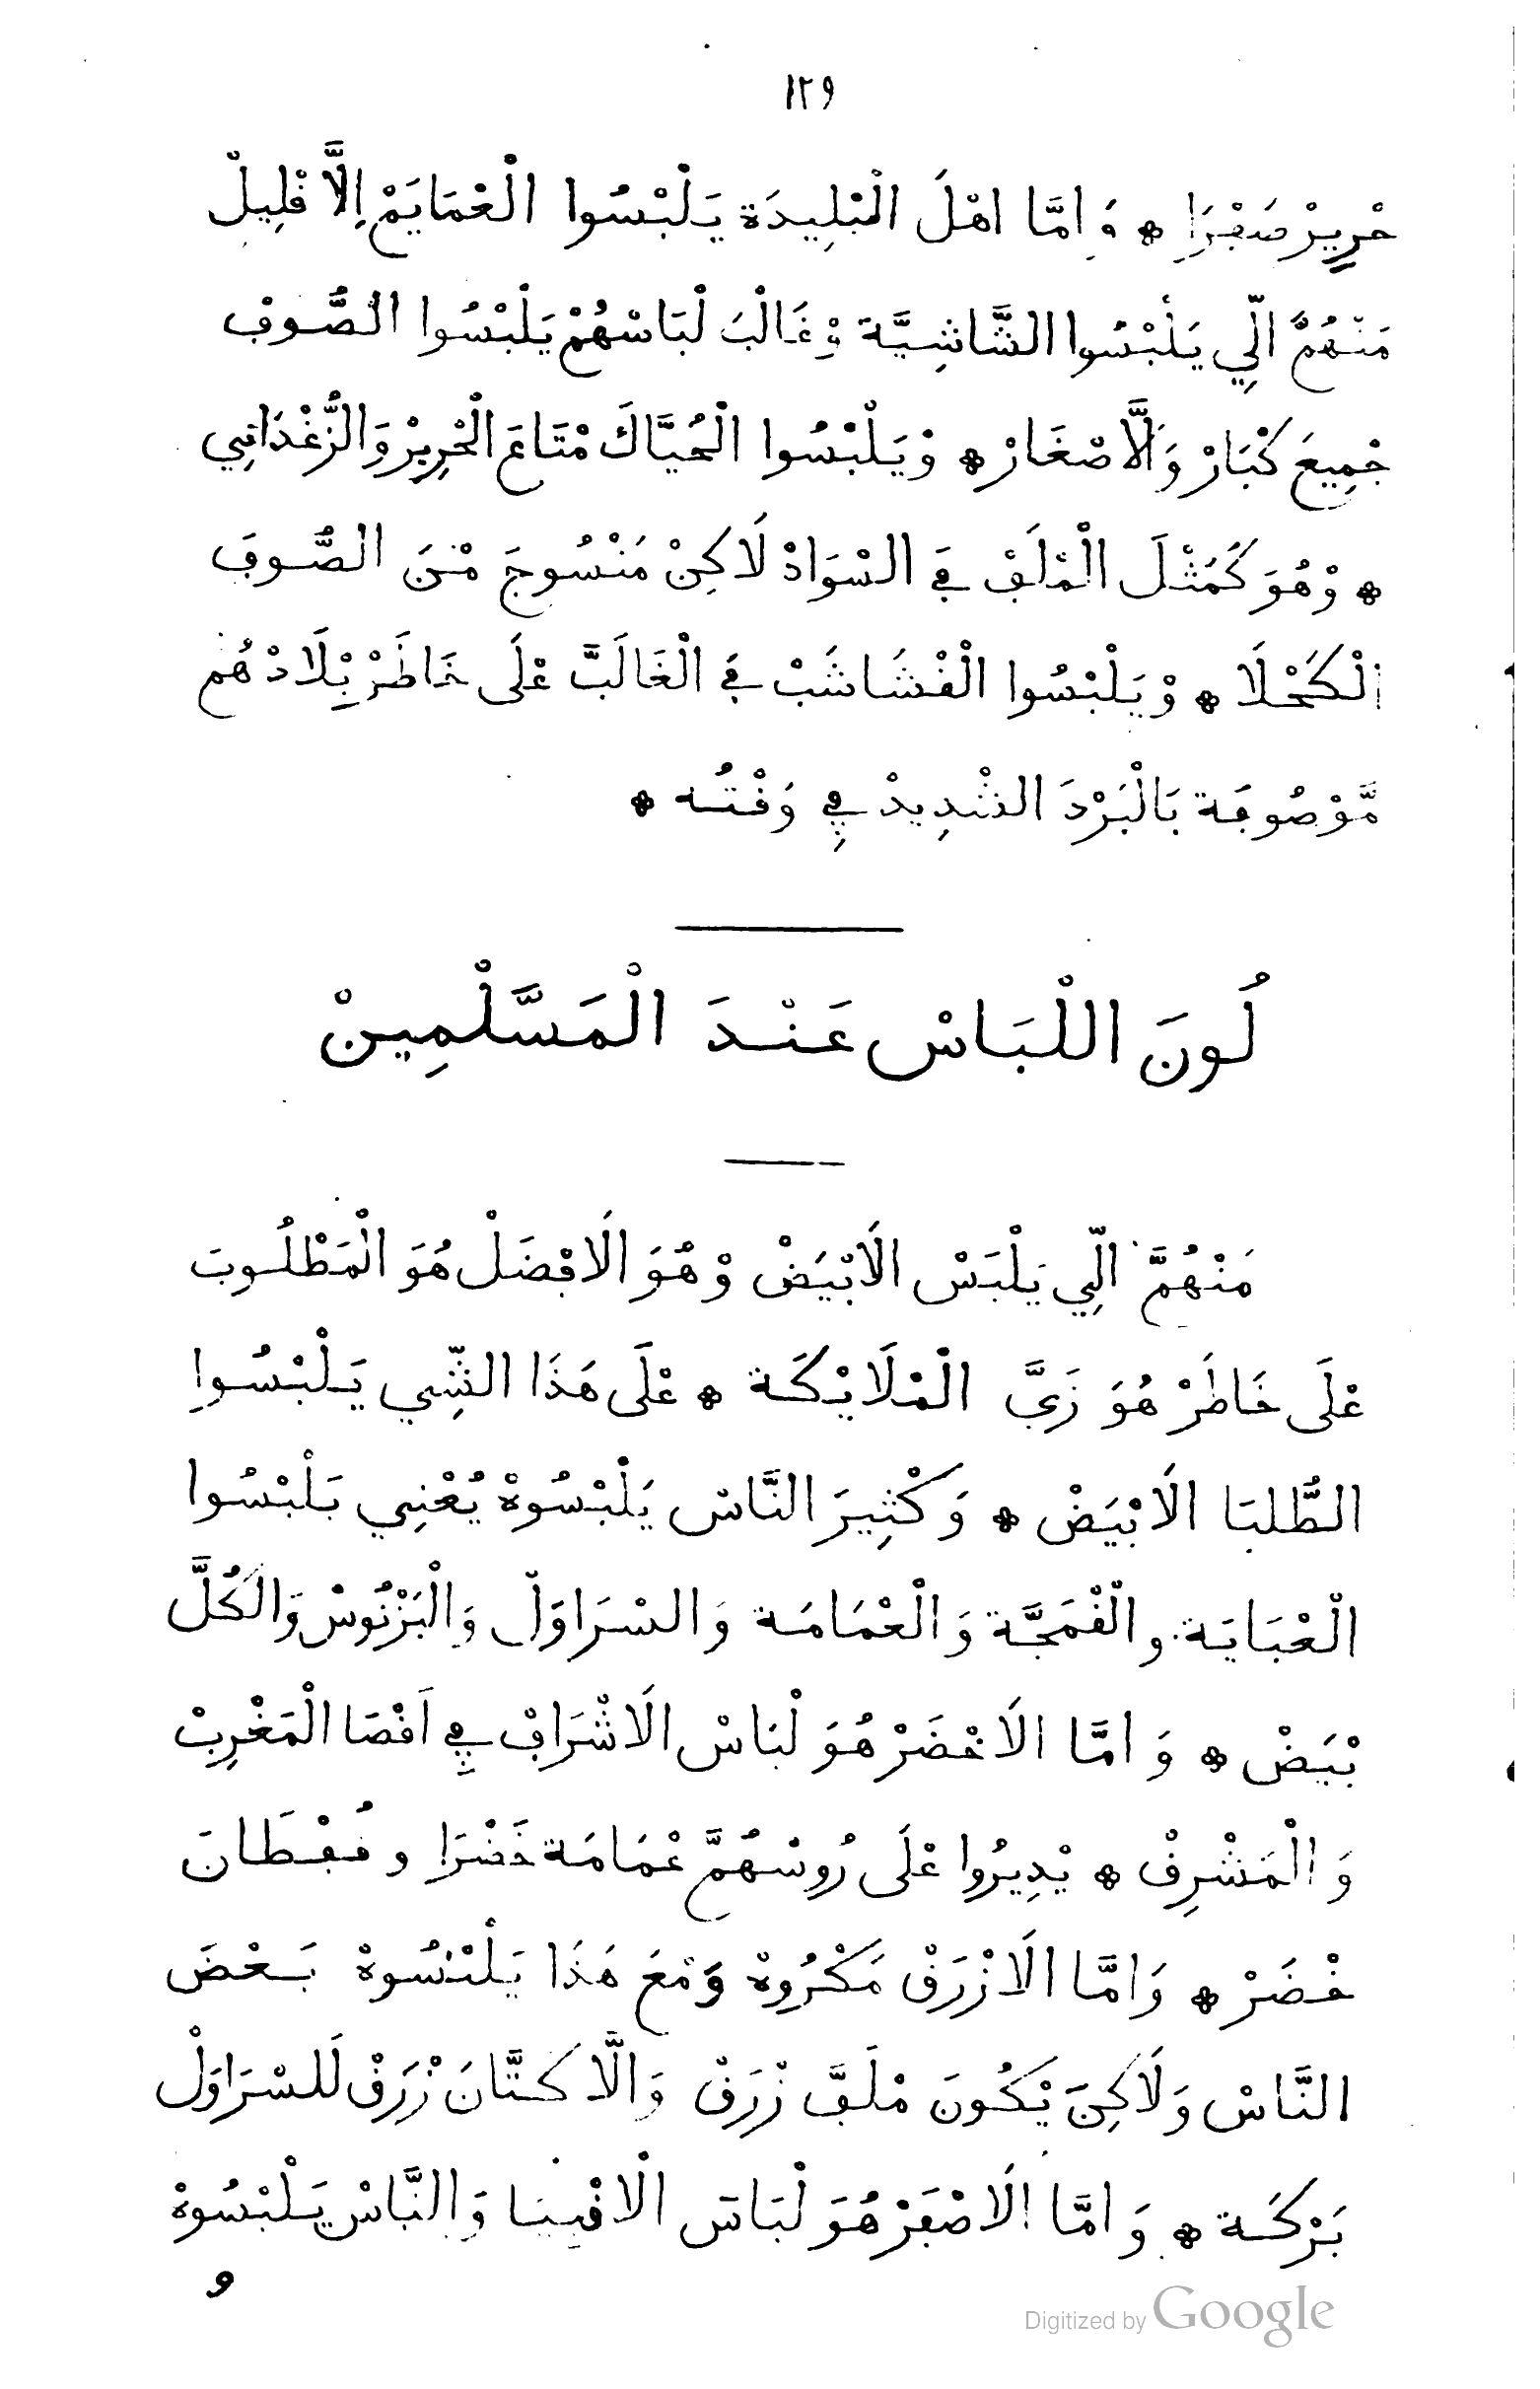 ١٢٩
حْرِيرْ صَڢْرَا * وَامَّا اهْلَ الْبْلِيدَة يَلْبْسُوا الْعْمَايَمْ اِلَّا ڧْلِيلْ
مَنْهُمَّ الِّي يَلْبْسُوا الشَّاشِيَّة وْغَالْبَ لْبَاسْهُمْ يَلْبْسُوا الصُّوڢْ
جْمِيعَ كْبَارْ وَلَّا صْغَارْ * وْيَلْبْسُوا الْحُيَّاكَ مْتَاعَ الْحْرِيرْ وَالزُّغْدَانِي
* وْهُوَ كَمْثْلَ الْمْلَڢْ ڢَِي السْوَادْ لَاكِنْ مَنْسُوجَ مْنَ الصُّوڢَ
الْكَحْلَا * وْيَلْبْسُوا الْڧْشَاشَبْ ڢَِي الْغَالَبَّ عْلَى خَاطَرْ بْلَادْهُمْ
مَّوْصُوڢَة بَالْبَرْدَ الشْدِيدْ ڢِي وَڧْتُه *
لُونَ اللْبَاسْ عَنْدَ الْمَسَّلْمِينْ
مَنْهُمَّ الِّي يَلْبَسْ الَابْيَضْ وْهُوَ الَاڢْضَلْ هُوَ الْمَطْلُوبَ
عْلَى خَاطَرْ هُوَ زَيَّ الْمْلَايْكَة * عْلَى هَذَا الشِّي يَلْبْسُوا
الطُّلبَا الَابْيَضْ * وَكْثِيرَ النَّاسْ يَلْبْسُوهْ يُعْنِي يَلْبْسُوا
الْعْبَايَة والْڧْمَجَّة وَالْعْمَامَة وَالسْرَاوَلْ وَالْبَرْنُوسْ وَالْكُلَّ
بْيَضْ * وَامَّا الَاخْضَرْ هُوَ لْبَاسْ الَاشْرَاڢْ ڢِي اَڧْصَا الْمَغْرِبْ
وَالْمَشْرِڧْ * يْدِيرُوا عْلَى رُوسْهُمَّ عْمَامَة خَضْرَا وڧُڢْطَانَ
خْضَرْ * وَامَّا الَازْرَڧْ مَكْرُوهْ وَمْعَ هَذَا يَلْبْسُوهْ بَعْضَ
النَّاسْ وَلَاكِنَ يْكُونَ مْلَڢَّ زْرَڧْ وَالَّا كتَّانَ زْرَڧْ لَلسْرَاوَلْ
بَرْكَة * وَامَّا الَاصْڢَرْ هُوَ لْبَاسَ الَاڧْبِيبَا وَالنَّاسْ يَلْبْسُوهْ
و
Digitized by Google